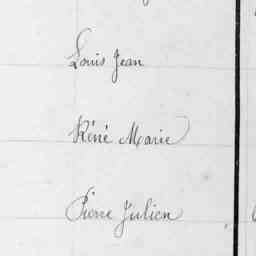 Louis Jean
Réné Marie
Pierre Julien